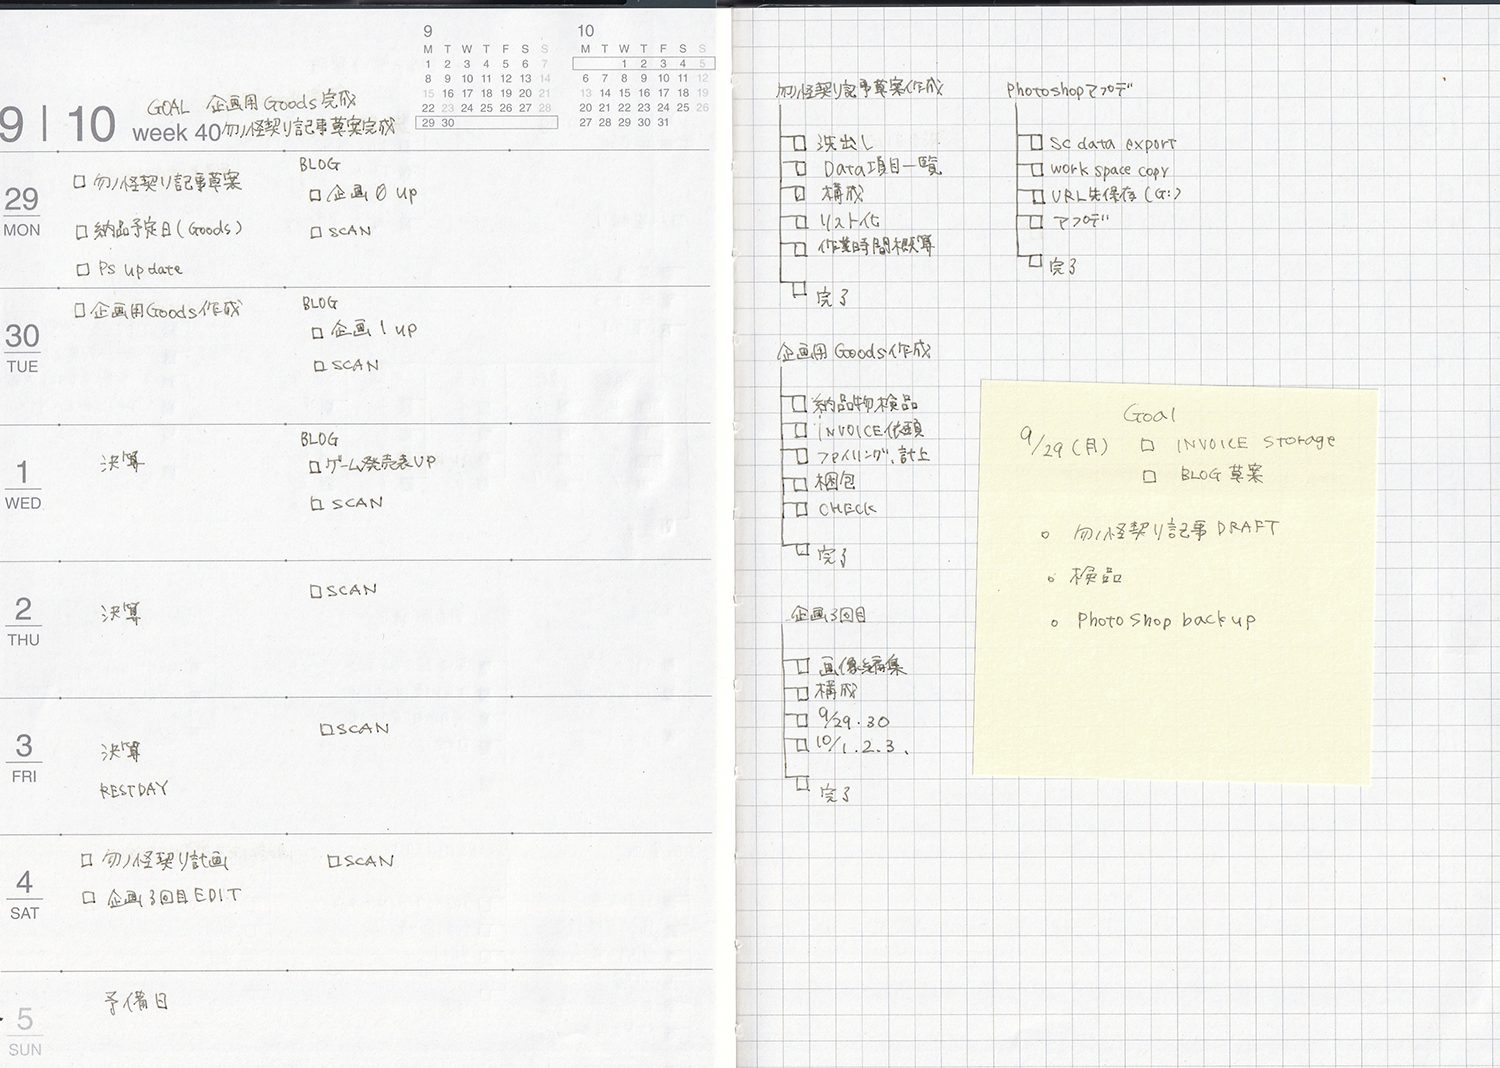 9
M T W T F S S
1 2 3 4 5 6 7
8 9 10 11 12 13 14
15 16 17 18 19 20 21
22 23 24 25 26 27 28
29 30
10
M T W T F S S
1 2 3 4 5
6 7 8 9 10 11 12
13 14 15 16 17 18 19
20 21 22 23 24 25 26
27 28 29 30 31
9 | 10
week 40
GOAL 企画用Goods完成
勿ノ怪契り記事草案完成
29
MON
勿ノ怪契り記事草案
納品予定日(Goods)
Ps update
BLOG
企画0 up
SCAN
30
TUE
企画用Goods作成
BLOG
企画1 up
SCAN
1
WED
決算
BLOG
ゲーム発売表UP
SCAN
2
THU
決算
SCAN
3
FRI
決算
RESTDAY
SCAN
4
SAT
勿ノ怪契り計画
企画3回目EDIT
SCAN
5
SUN
予備日
勿ノ怪契り記事草案作成
洗出し
Data項目一覧
構成
リスト化
作業時間概算
完了
Photoshopアプデ
Sc data export
work space copy
URL先保存(G:)
アプデ
完了
企画用Goods作成
納品物検品
INVOICE依頼
ファイリング、計上
梱包
CHECK
完了
企画3回目
画像編集
構成
9/29.30
10/1.2.3.
完了
Goal
9/29(月) INVOICE storage
BLOG草案
勿ノ怪契り記事DRAFT
検品
Photoshop backup